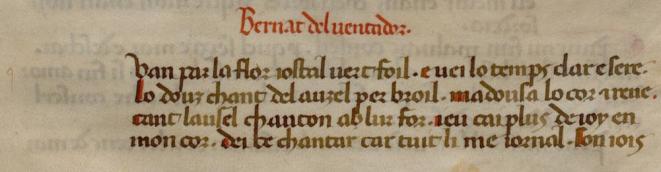 Bernat del uentador.
Van par la flor iostal uert foil. e uei lo temps clar e sere.
lo douz chant del auzel per broil. madousa lo cor reue.
tant lausel chanton ab lur for. ieu cai plus de ioy en
mon cor. dei be chantar car tuit li me iornal. son iois